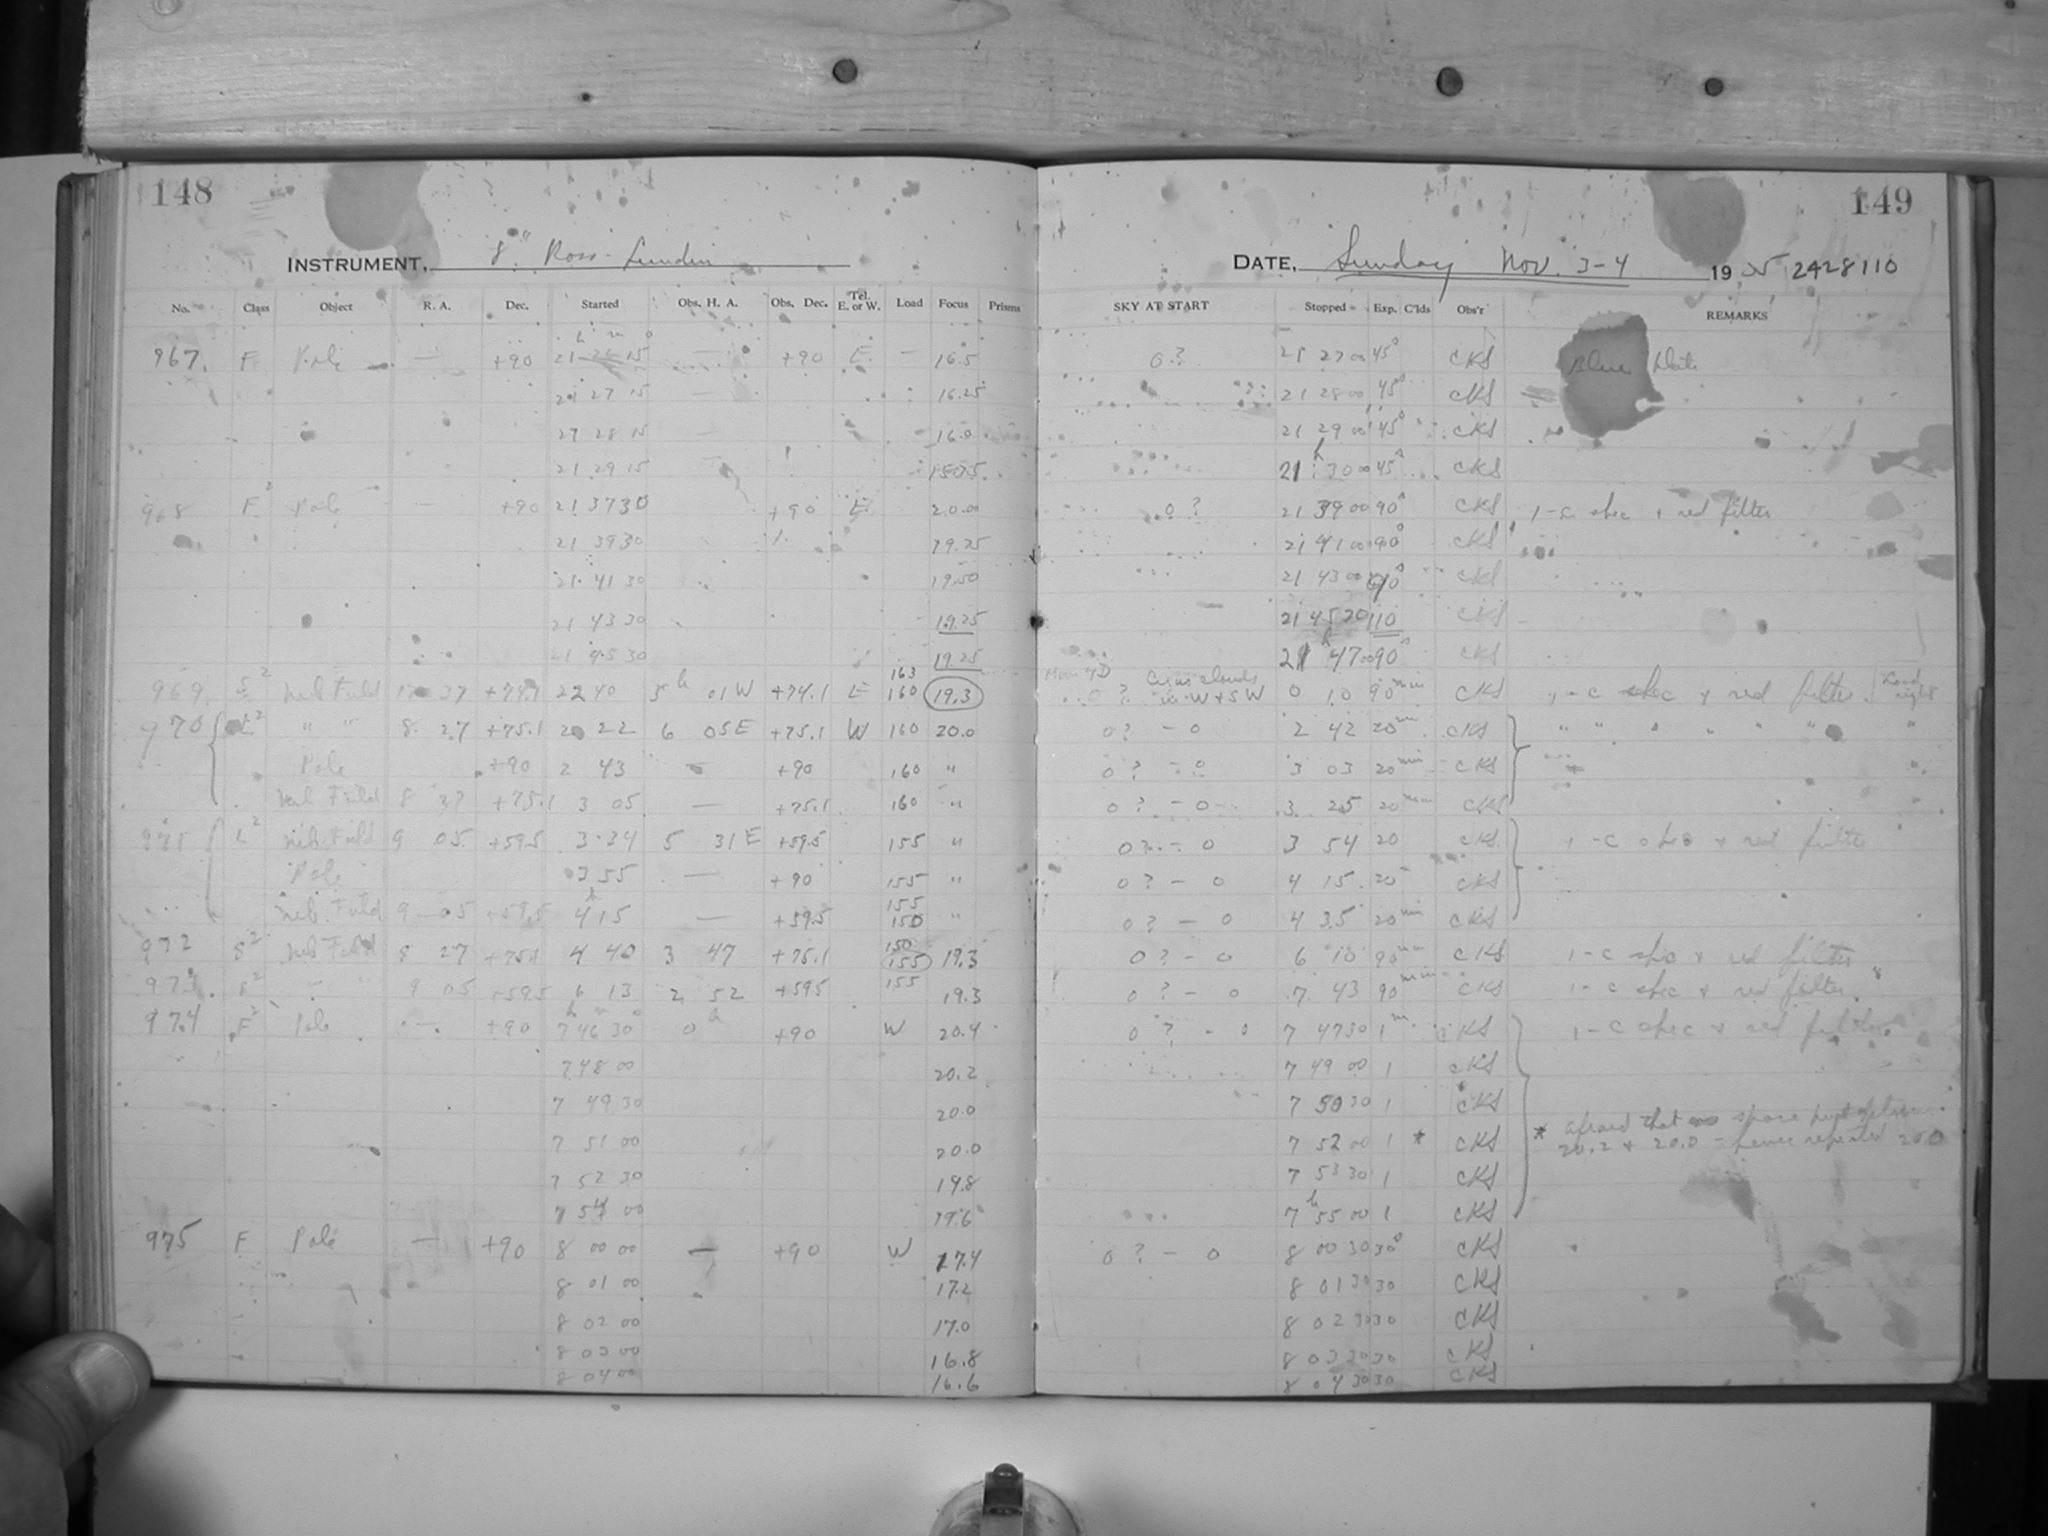 148
149
INSTRUMENT, 8" Ross-Lundin
DATE, Sunday Nov. 3-4 1935 2428110
No. Class Object R. A. Dec. Started Obs. H. A. Obs. Dec. Tel. E. or W. Load Focus Prisms SKY AT START Stopped Exp. C'lds Obs'r REMARKS
967. F Pole — +90 21 26 15 — +90 E. — 16.5 0? 21 27 00 45s CKS Blue Plate
21 27 15 — 16.25 21 28 00 45s CKS
21 28 15 — 16.0 21 29 00 45s CKS
21 29 15 15.75 21h 30 00 45s CKS
968 F2 Pole — +90 21 37 30 +90 E 20.0 0? 21 39 00 90s CKS 1-C spec + red filter
21 39 30 19.75 21 41 00 90s CKS
21 41 30 19.50 21 43 00 90s CKS
21 43 30 19.25 21 45 20 110 CKS
21 45 30 19.25 21 47 00 90s CKS
969 S2 Neb Field 37 +74.1 22 40 3h 01 W +74.1 E 163 160 19.3 0? Cirrus clouds in W + SW 0 10 90min CKS 1-C spec + red filter. Load right
970 L2 " " 8 27 +75.1 2 22 6 05E +75.1 W 160 20.0 0? - 0 2 42 20min CKS " " " " " " "
Pole +90 2 43 — +90 160 " 0? - 0 3 03 20min CKS
Neb Field 8 37 +75.1 3 05 — +75.1 160 " 0? - 0 3 25 20min CKS
971 L2 Neb. Field 9 05 +59.5 3 34 5 31E +59.5 155 " 0? - 0 3 54 20 CKS 1-C spec + red filter
Pole 3 55 — +90 155 " 0? - 0 4 15 20 CKS
Neb. Field 9 05 +59.5 4 15 — +59.5 155 150 " 0? - 0 4 35 20min CKS
972 S2 Neb Field 8 27 +75.1 4 40 3 47 +75.1 150 155 19.3 0? - 0 6 10 90min CKS 1-C spec + red filter
973. S2 " " 9 05 +59.5 6 13 2 52 +59.5 155 19.3 0? - 0 7 43 90min CKS 1-C spec + red filter.
974 F2 Pole — +90 7 46 30 0h +90 W 20.4 0? - 0 7 47 30 1m CKS 1-C spec + red filter.
7 48 00 20.2 7 49 00 1 CKS
7 49 30 20.0 7 50 30 1 CKS
7 51 00 20.0 7 52 00 1 * CKS * Afraid that no space put between
7 52 30 19.8 7 53 30 1 CKS 20.2 + 20.0 - hence repeated 20.0
7 54 00 19.6 7h 55 00 1 CKS
975 F Pole — +90 8 00 00 — +90 W 17.4 0? - 0 8 00 30 30s CKS
8 01 00 17.2 8 01 30 30 CKS
8 02 00 17.0 8 02 30 30 CKS
8 03 00 16.8 8 03 30 30 CKS
8 04 00 16.6 8 04 30 30 CKS